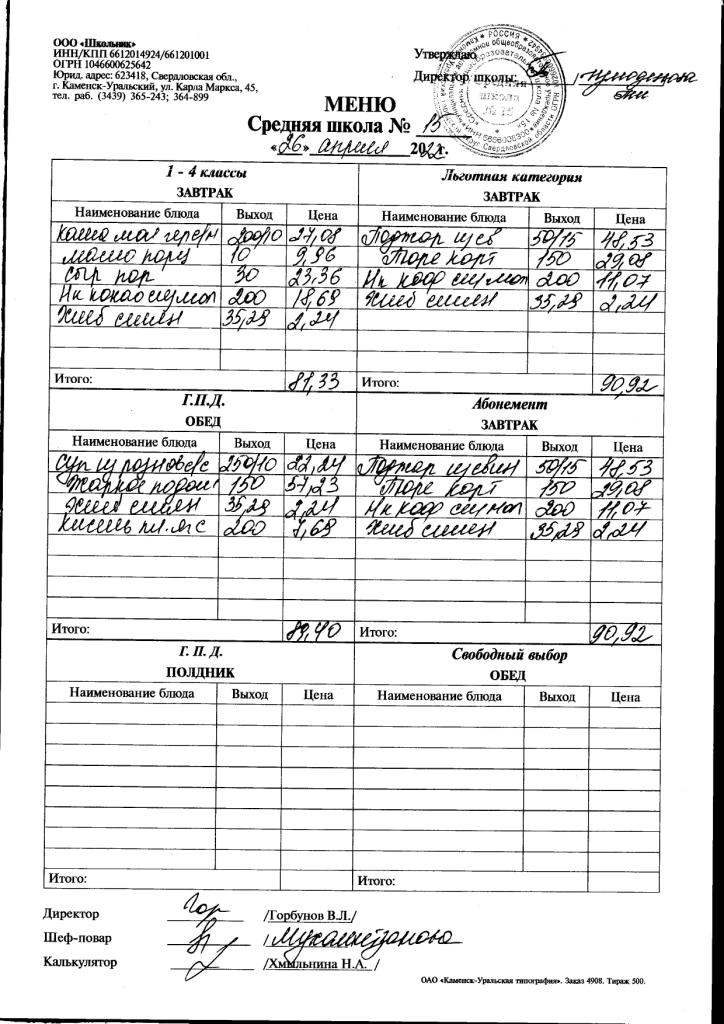 ООО «Школьник»
ИНН/КПП 6612014924/661201001
ОГРН 1046600625642
Юрид. адрес: 623418, Свердловская обл.,
г. Каменск-Уральский, ул. Карла Маркса, 45,
тел. раб. (3439) 365-243; 364-899
Утверждаю
Директор школы:
средняя
школа
№ 15
МЕНЮ
Средняя школа № 15
«26» апреля 2022 г.
1 - 4 классы
ЗАВТРАК
Наименование блюда Выход Цена
Каша мол геркул 200/10 27,08
масло порц 10 9,96
сыр пор 30 23,36
Нк какао с мол 200 18,69
Хлеб смеш 35,29 2,24
Итого: 81,33
Льготная категория
ЗАВТРАК
Наименование блюда Выход Цена
Поджар 50/15 48,53
Пюре карт 150 29,08
Нк коф с мол 200 11,07
Хлеб смеш 35,29 2,24
Итого: 90,92
Г.П.Д.
ОБЕД
Наименование блюда Выход Цена
Суп 250/10 22,24
Жаркое по дом 150 57,23
Хлеб смеш 35,29 2,24
Кисель пл яг с 200 7,69
Итого: 89,40
Абонемент
ЗАВТРАК
Наименование блюда Выход Цена
Поджар 50/15 48,53
Пюре карт 150 29,08
Нк коф с мол 200 11,07
Хлеб смеш 35,29 2,24
Итого: 90,92
Г. П. Д.
ПОЛДНИК
Наименование блюда Выход Цена
Итого:
Свободный выбор
ОБЕД
Наименование блюда Выход Цена
Итого:
Директор /Горбунов В.Л./
Шеф-повар
Калькулятор /Хмыльнина Н.А. /
ОАО «Каменск-Уральская типография». Заказ 4908. Тираж 500.